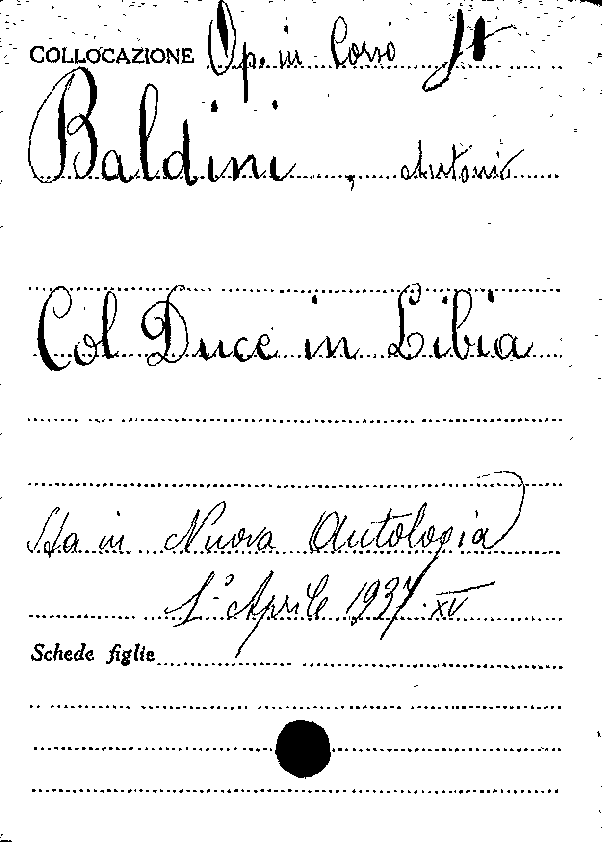 COLLOCAZIONE Op. in Corso It
Baldini, Antonio
Col Duce in Libia
Sta in Nuova Antologia
1° Aprile 1937. XV
Schede figlie